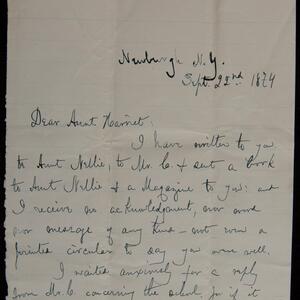 Newburgh N.Y.
Sept. 22nd 1874
Dear Aunt Harriet.
I have written to you
to Aunt Nellie, to Mr. C & sent a book
to Aunt Nellie & a Magazine to you: and
I receive no acknowledgment, nor word
nor message of any kind - not even a
printed circular to say you were well.
I waited anxiously for a reply
from Mr. C. concerning the school, for if it